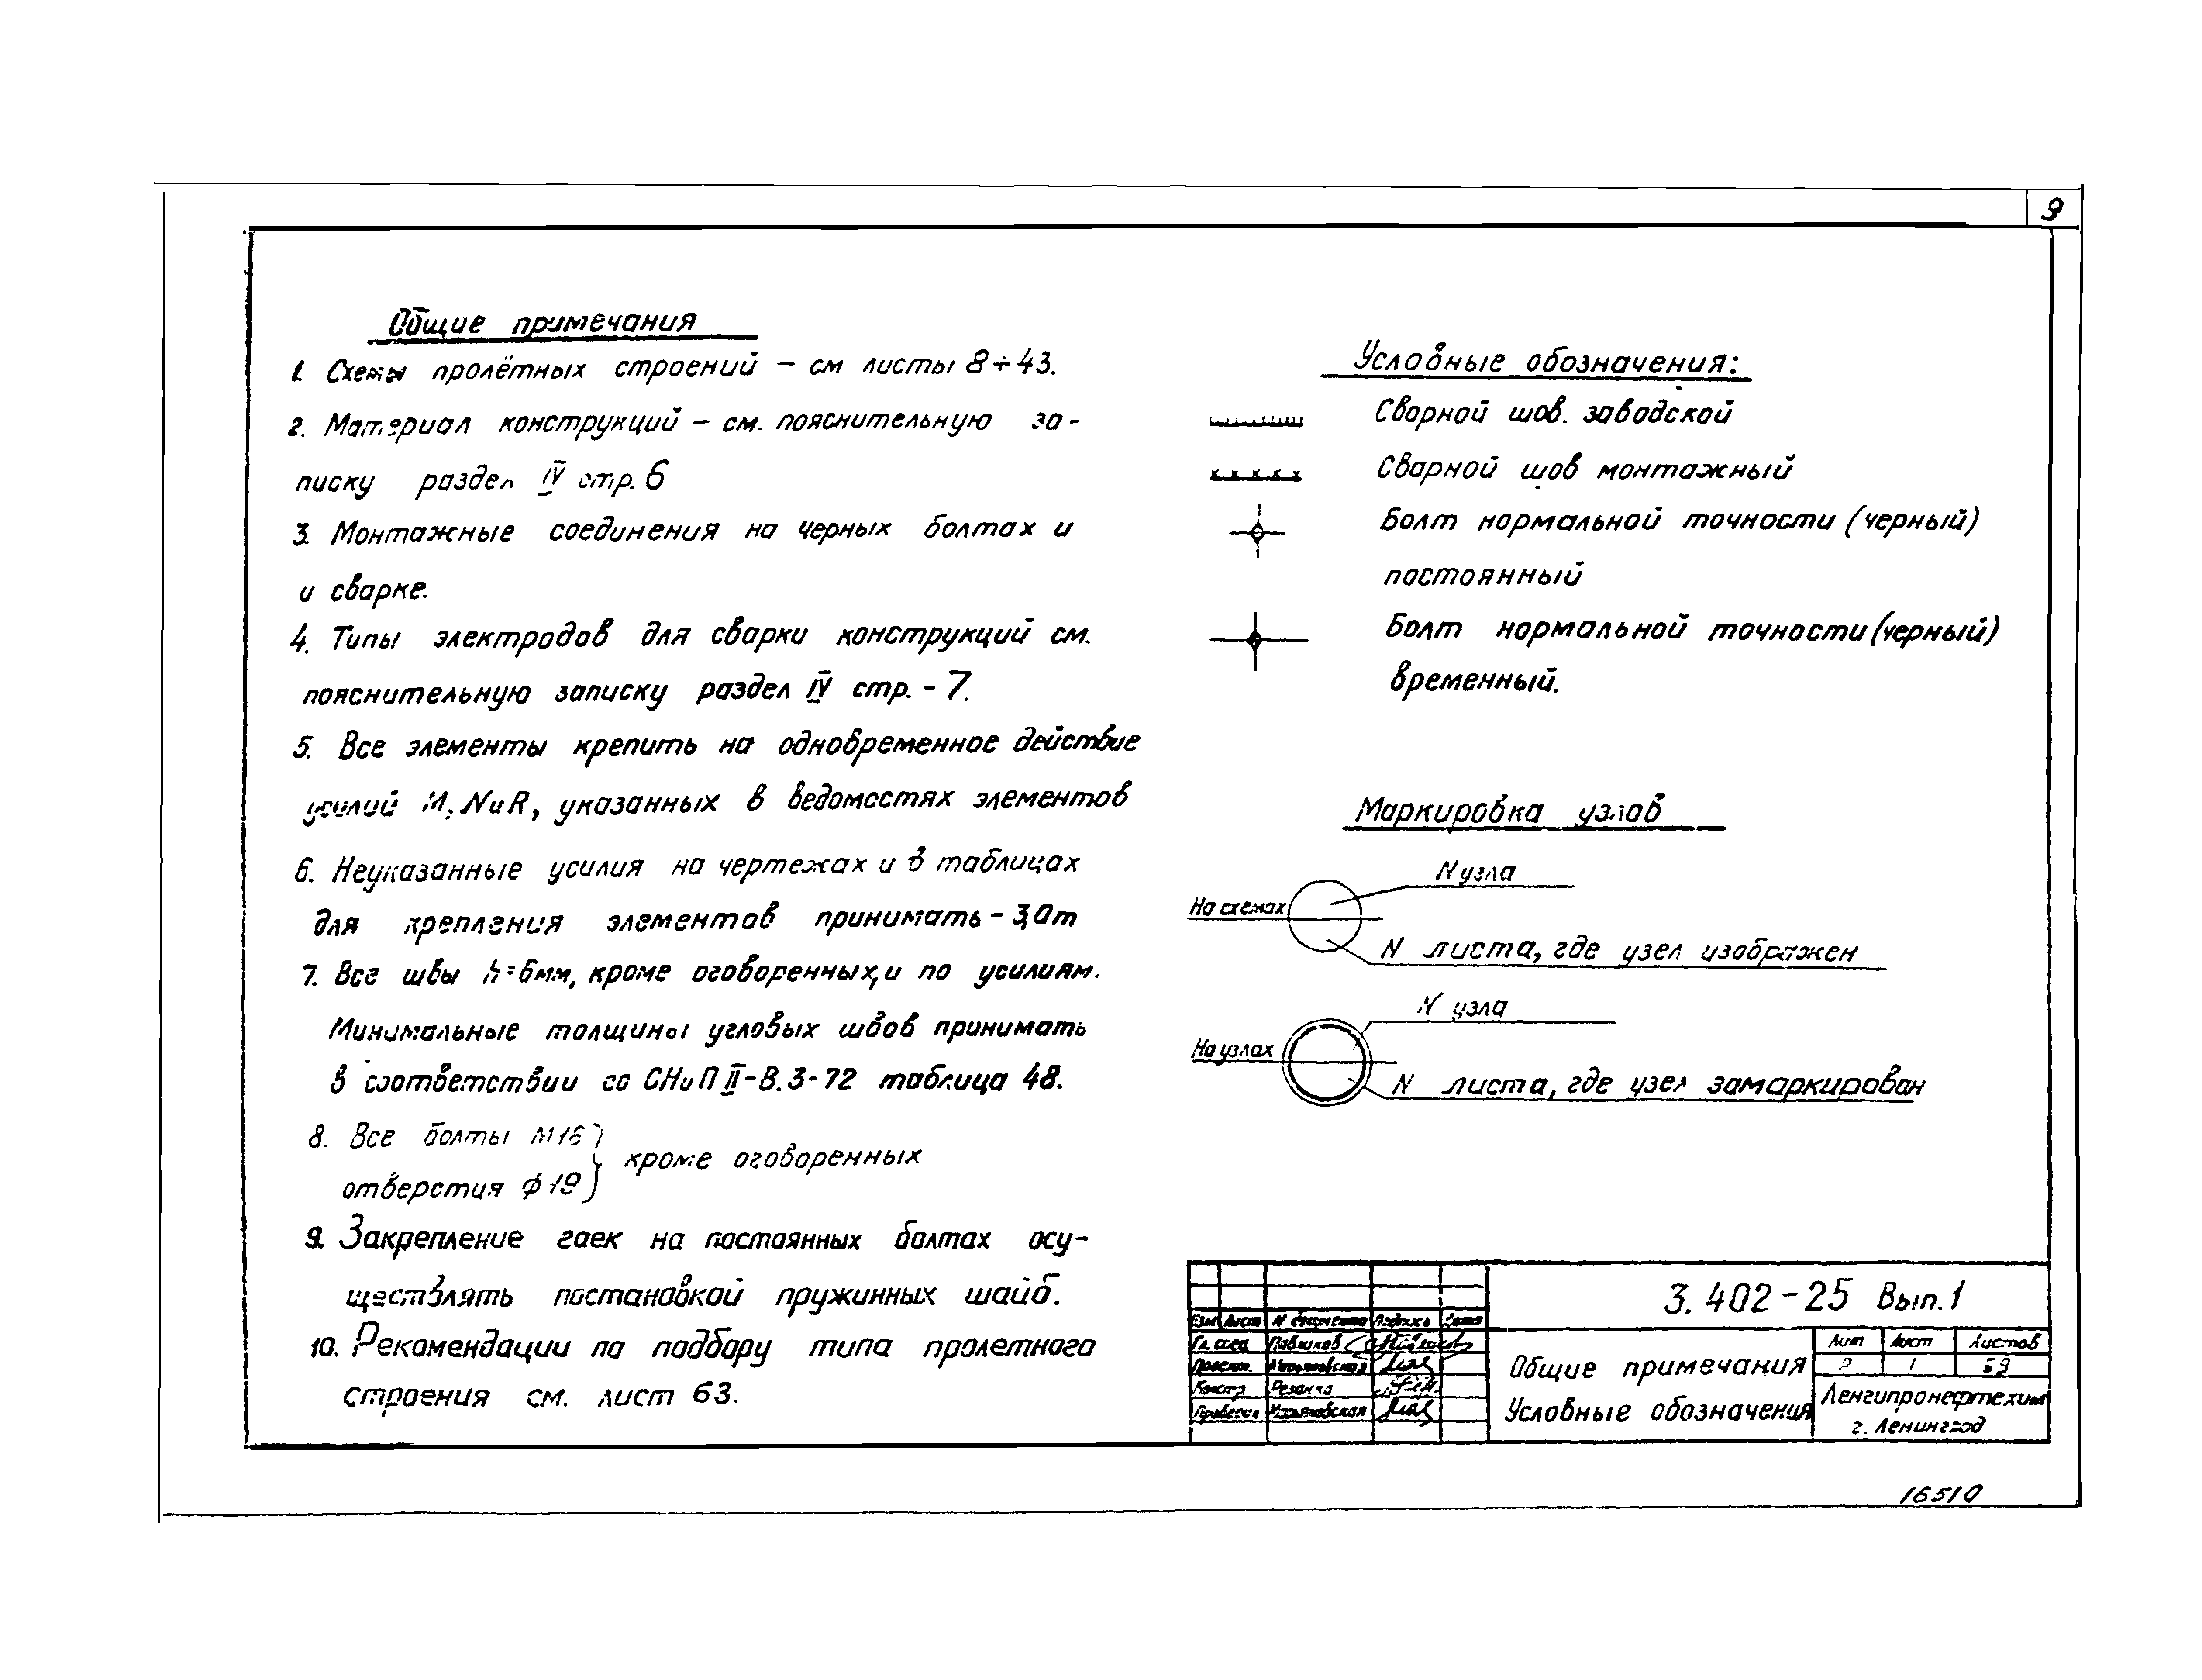 9
Общие примечания
1. Схемы пролётных строений – см листы 8÷43.
2. Материал конструкций – см. пояснительную за-
писку раздел IV стр. 6
3. Монтажные соединения на черных болтах и
и сварке.
4. Типы электродов для сварки конструкций см.
пояснительную записку раздел IV стр. - 7.
5. Все элементы крепить на одновременное действие
усилий M, N и R, указанных в ведомостях элементов
6. Неуказанные усилия на чертежах и в таблицах
для крепления элементов принимать - 3,0т
7. Все швы h=6мм, кроме оговоренных, и по усилиям.
Минимальные толщины угловых швов принимать
в соответствии со СНиП II-В.3-72 таблица 48.
8. Все болты М16
отверстия ф19
кроме оговоренных
9. Закрепление гаек на постоянных болтах осу-
ществлять постановкой пружинных шайб.
10. Рекомендации по подбору типа пролетного
строения см. лист 63.
Условные обозначения:
Сварной шов. заводской
Сварной шов монтажный
Болт нормальной точности (черный)
постоянный
Болт нормальной точности (черный)
временный.
Маркировка узлов
N узла
На схемах
N листа, где узел изображен
N узла
На узлах
N листа, где узел замаркирован
3.402-25 Вып.1
Изм Лист N документа Подпись Дата
Общие примечания
Условные обозначения
Лит Лист Листов
Р 1
Ленгипронефтехим
г. Ленинград
16510